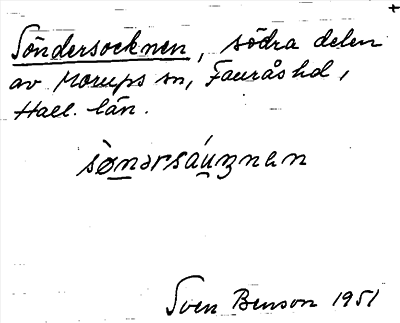 +
Söndersocknen, södra delen
av Morups sn, Faurås hd,
Hall. län.
sø̀nərsáuŋnən
Sven Benson 1951